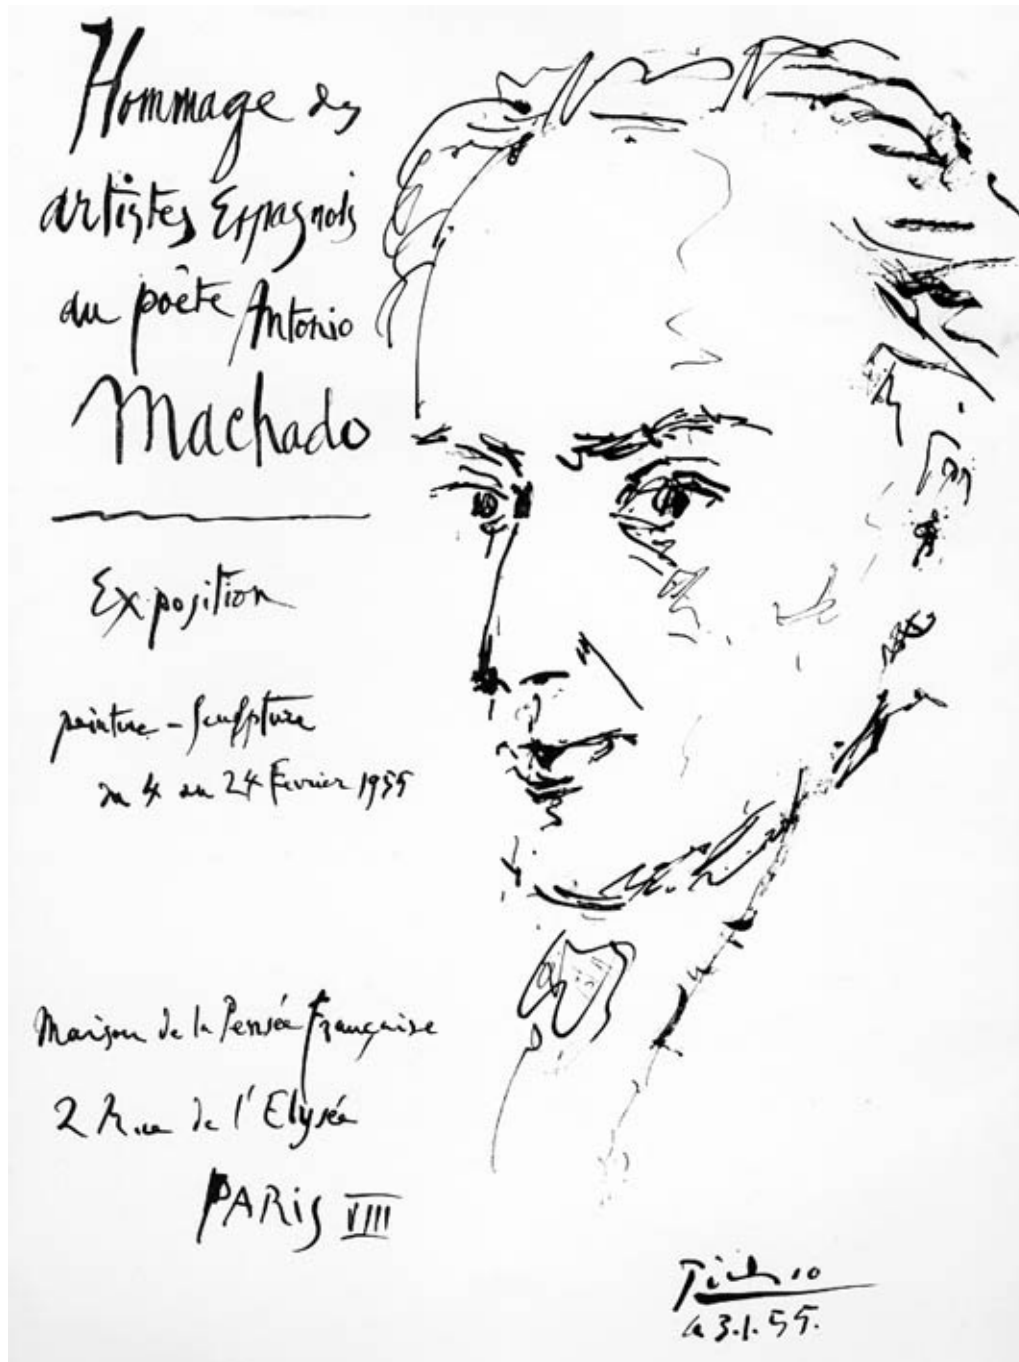 Hommage des
artistes Espagnols
au poète Antonio
Machado
Exposition
peinture - Sculpture
du 4 au 24 Fevrier 1955
Maison de la Pensée Française
2 Rue de l'Elysée
PARIS VIII
Picasso
le 3.1.55.